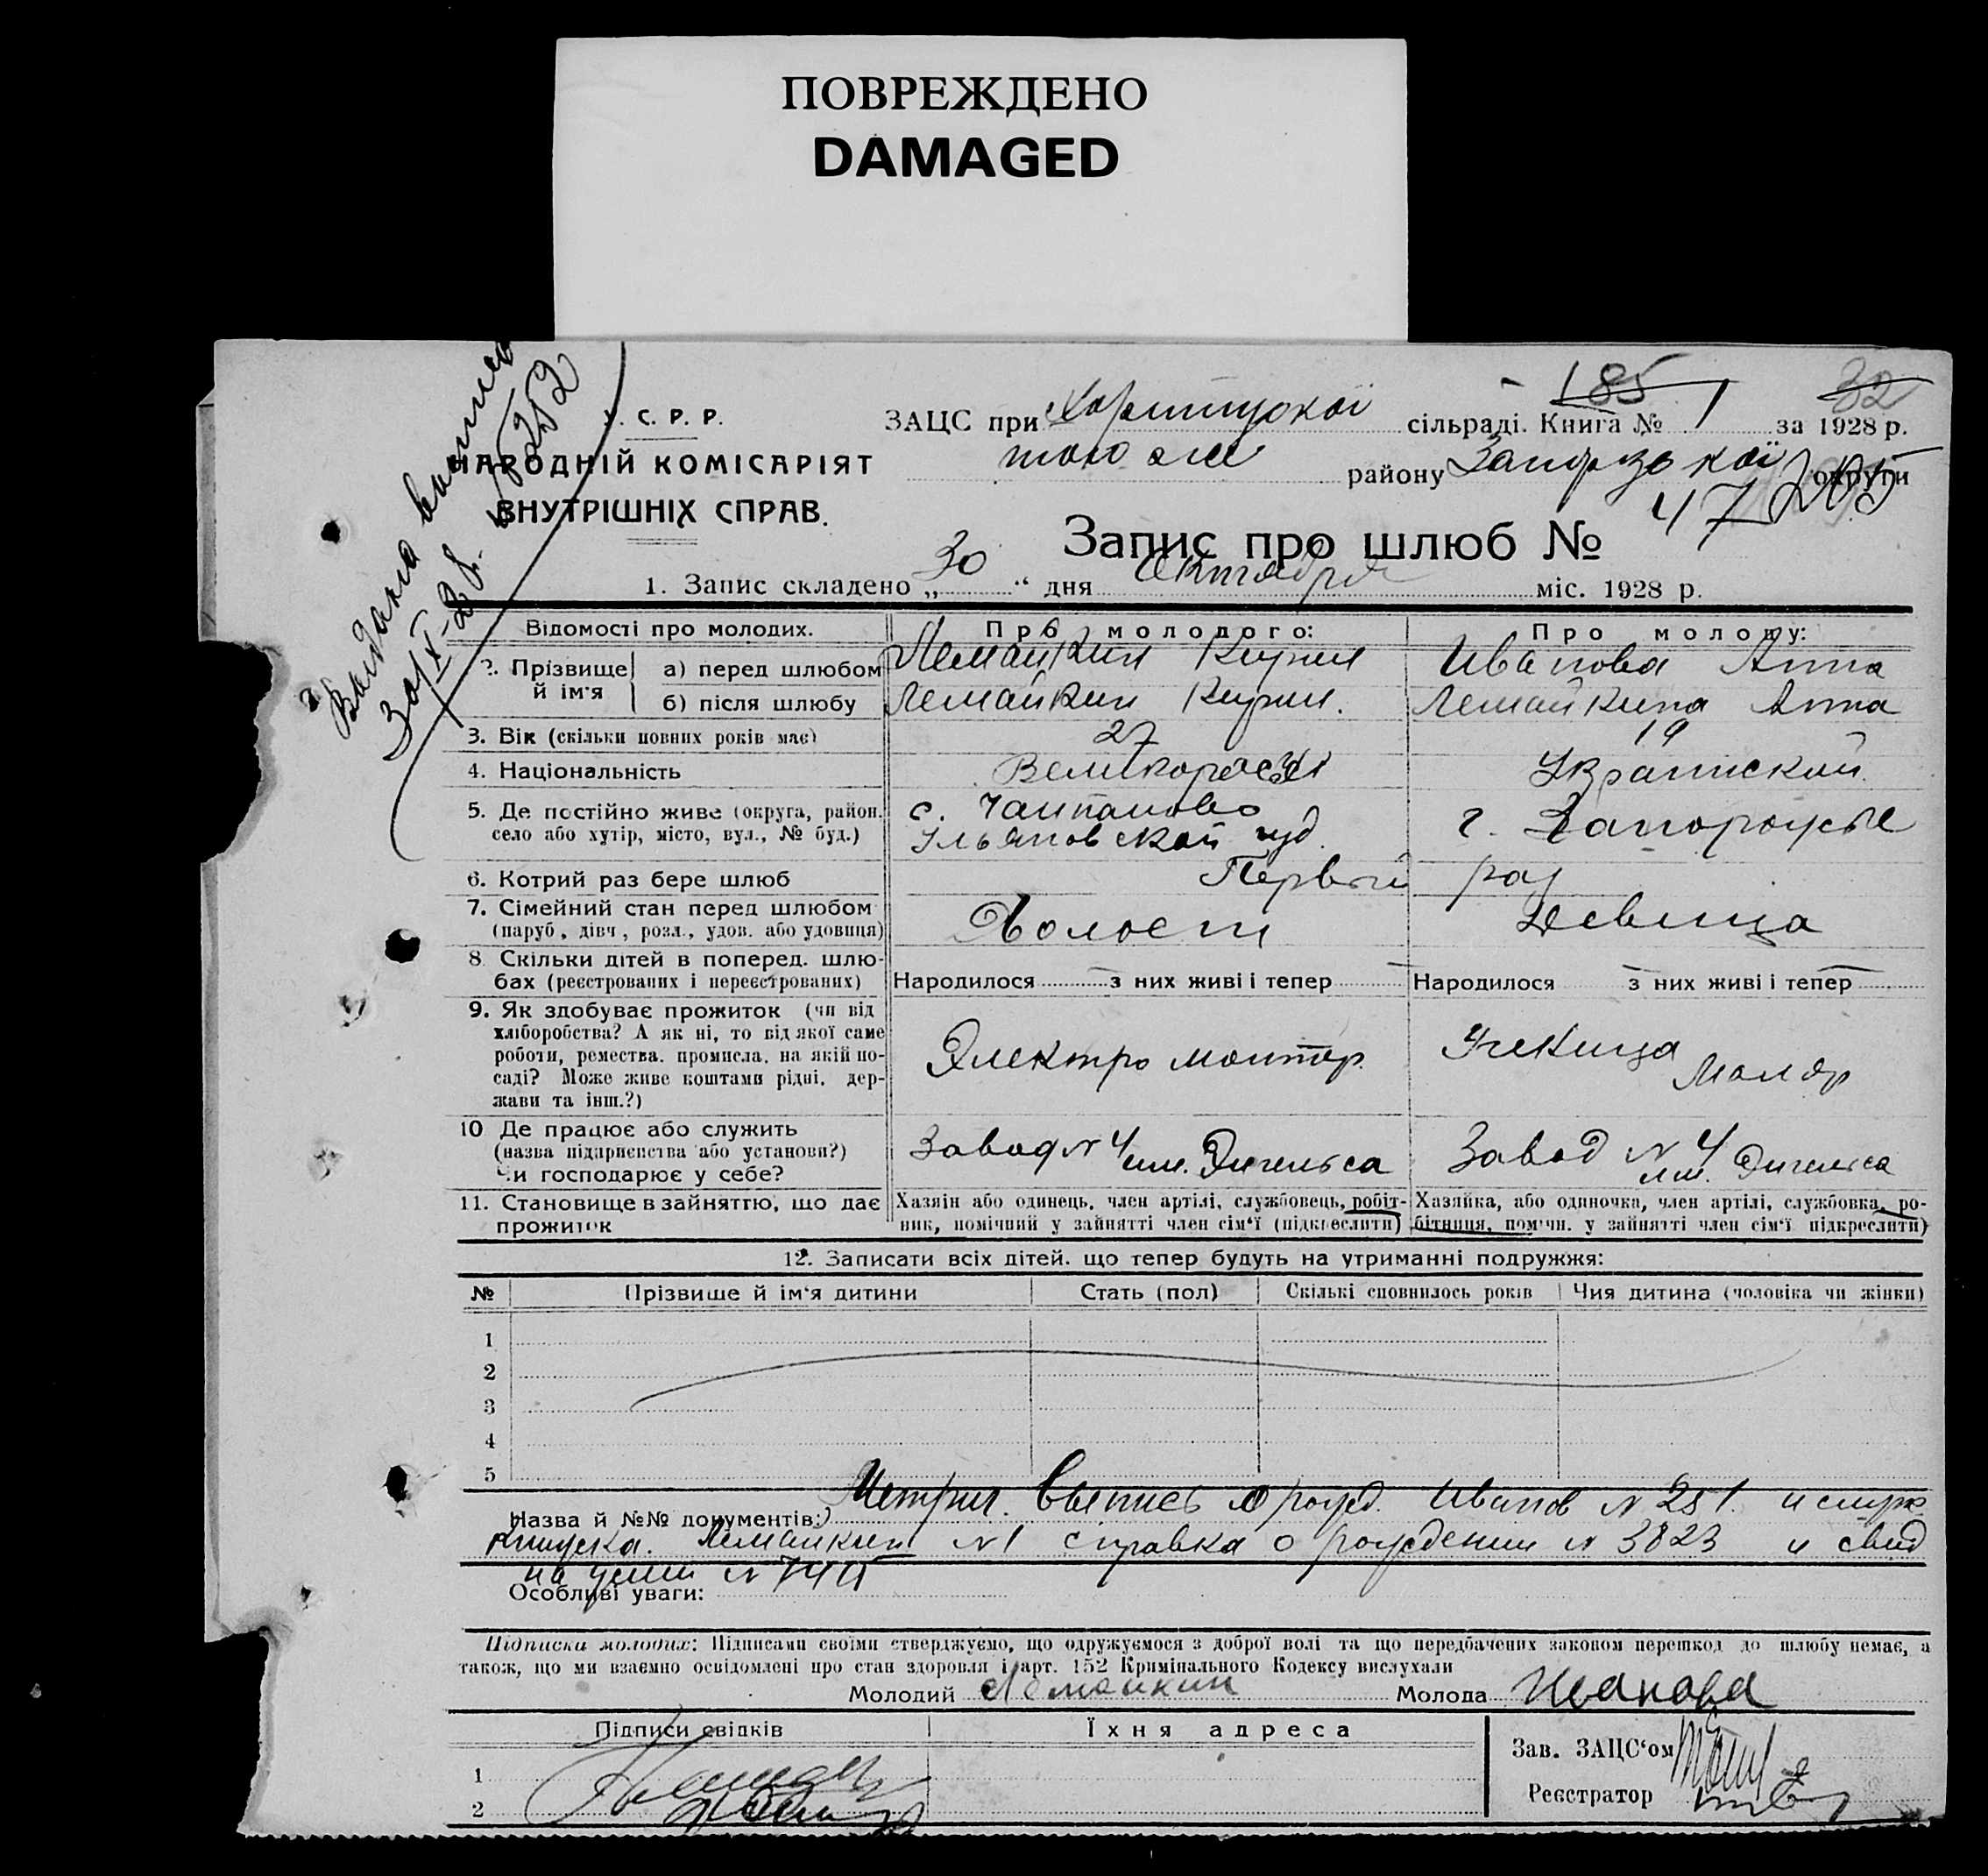 ПОВРЕЖДЕНО
DAMAGED
Видана
30/X-28.
С. Р. Р.
НАРОДНІЙ КОМІСАРІЯТ
ВНУТРІШНІХ СПРАВ.
185 32
ЗАЦС при Хортицкої сільраді. Книга № 1 за 1928 р.
того же району Запорізької округи
Запис про шлюб № 47 205
1. Запис складено „30“ дня Октября міс. 1928 р.
Відомості про молодих. Про молодого: Про молоду:
2. Прізвище й ім'я а) перед шлюбом Лемайкин Кирил Иванова Анна
б) після шлюбу Лемайкин Кирил. Лемайкина Анна
3. Вік (скільки повних років має) 27 19
4. Національність Великоросс Украинский
5. Де постійно живе (округа, район. с.
село або хутір, місто, вул., № буд.) Ульяновской губ. г. Запорожье
6. Котрий раз бере шлюб Первый раз
7. Сімейний стан перед шлюбом Холост Девица
(паруб, дівч, розл., удов. або удовиця)
8. Скільки дітей в поперед. шлю-
бах (реєстрованих і нереєстрованих) Народилося — з них живі і тепер — Народилося — з них живі і тепер —
9. Як здобуває прожиток (чи від
хліборобства? А як ні, то від якої саме
роботи, ремества. промисла. на якій по- Электро монтер. Ученица Маляр
саді? Може живе коштами рідні, дер-
жави та інш.?)
10 Де працює або служить Завод № 4 им. Энгельса Завод № 4 им. Энгельса
(назва підприємства або установи?)
Чи господарює у себе?
11. Становище в зайняттю, що дає Хазяін або одинець, член артілі, службовець, робіт- Хазяйка, або одиночка, член артілі, службовка, ро-
прожиток ник, помічний у зайнятті член сім'ї (підкреслити) бітниця, помічн. у зайнятті член сім'ї підкреслити)
12. Записати всіх дітей. що тепер будуть на утриманні подружжя:
№ Прізвище й ім'я дитини Стать (пол) Скількі сповнилось років Чия дитина (чоловіка чи жінки)
1
2
3
4
5
Назва й №№ документів: Метрич. Выпись о рожд. Иванов № 251.
книжка. Лемайкин № 1 справка о рождении № 3823 и свид
Особливі уваги:
Підписка молодих: Підписами своїми стверджуємо, що одружуємося з доброї волі та що передбачених законом перешкод до шлюбу немає, а
також, що ми взаємно освідомлені про стан здоровля і арт. 152 Кримінального Кодексу вислухали
Молодий Лемайкин Молода Иванова
Підписи свідків Їхня адреса
Зав. ЗАЦС'ом
1
Реєстратор
2